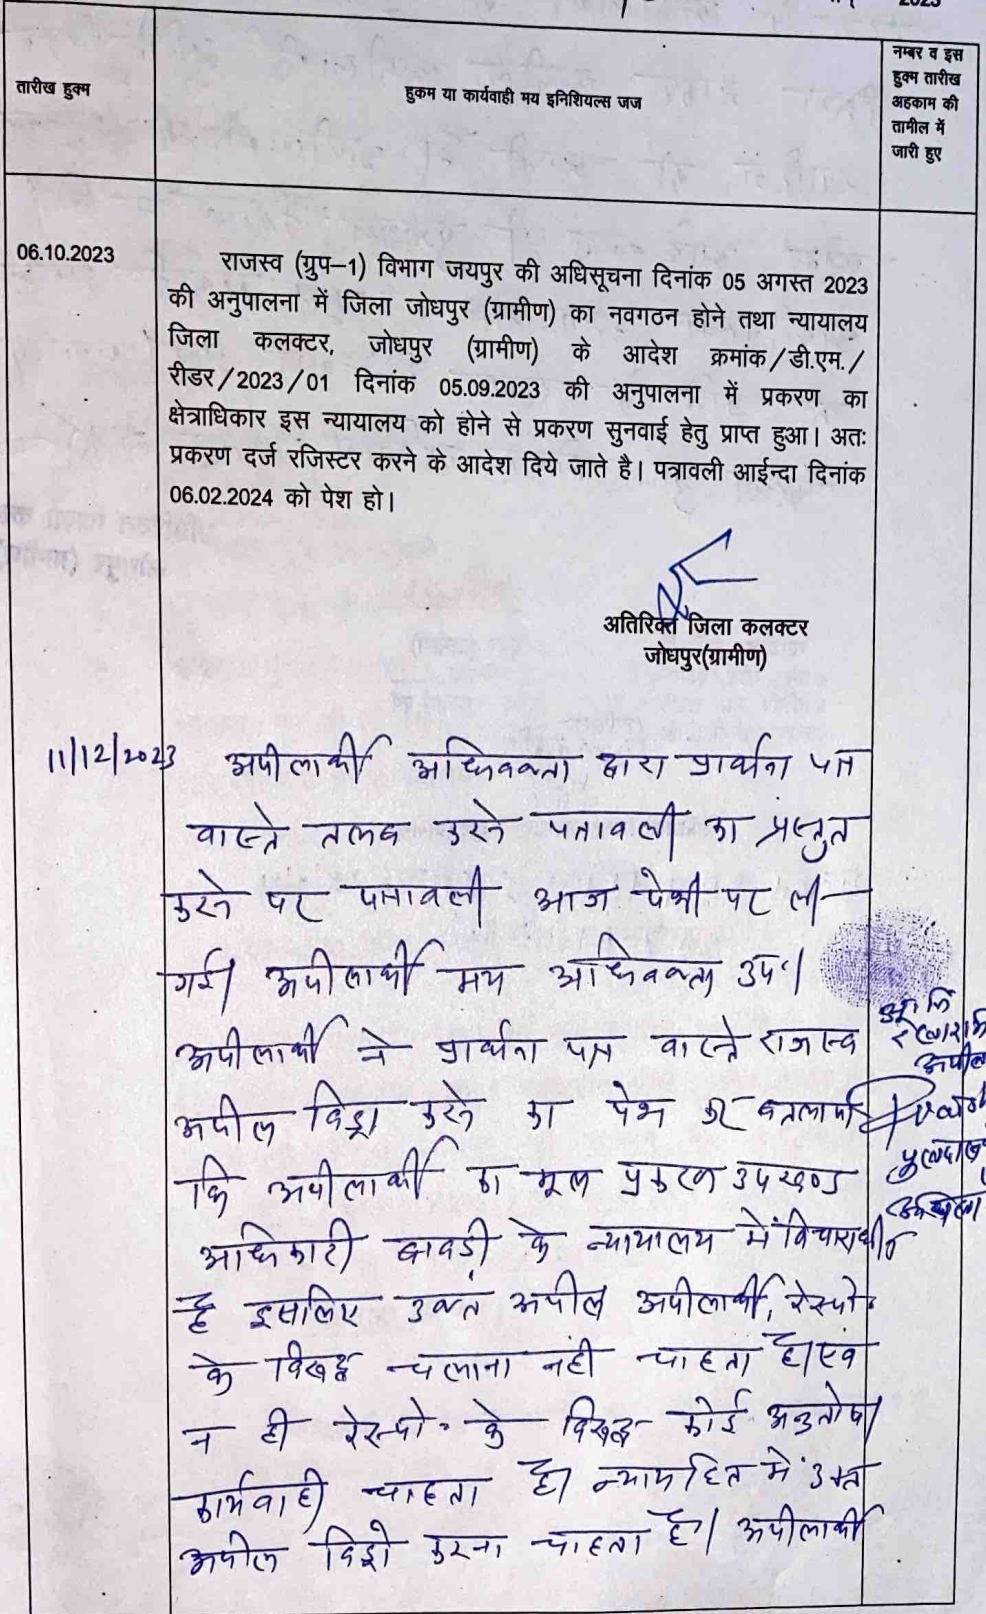 2023
तारीख हुक्म
हुकम या कार्यवाही मय इनिशियल्स जज
नम्बर व इस
हुक्म तारीख
अहकाम की
तामील में
जारी हुए
06.10.2023
राजस्व (ग्रुप–1) विभाग जयपुर की अधिसूचना दिनांक 05 अगस्त 2023
की अनुपालना में जिला जोधपुर (ग्रामीण) का नवगठन होने तथा न्यायालय
जिला कलक्टर, जोधपुर (ग्रामीण) के आदेश क्रमांक/डी.एम./
रीडर/2023/01 दिनांक 05.09.2023 की अनुपालना में प्रकरण का
क्षेत्राधिकार इस न्यायालय को होने से प्रकरण सुनवाई हेतु प्राप्त हुआ। अतः
प्रकरण दर्ज रजिस्टर करने के आदेश दिये जाते है। पत्रावली आईन्दा दिनांक
06.02.2024 को पेश हो।
अतिरिक्त जिला कलक्टर
जोधपुर(ग्रामीण)
11/12/2023 अपीलार्थी अधिवक्ता द्वारा प्रार्थना पत्र
वास्ते तलब करने पत्रावली का प्रस्तुत
करने पर पत्रावली आज पेशी पर ली
गई। अपीलार्थी मय अधिवक्ता उप॰।
अपीलार्थी ने प्रार्थना पत्र वास्ते राजस्व
अपील विड्रा करने का पेश कर बतलाया
कि अपीलार्थी का मूल प्रकरण उपखण्ड
अधिकारी बावड़ी के न्यायालय में विचाराधीन
है इसलिए उक्त अपील अपीलार्थी, रेस्पो॰
के विरूद्ध चलाना नहीं चाहता है। एवं
न ही रेस्पो॰ के विरूद्ध कोई अनुतोष/
कार्यवाही चाहता है। न्यायहित में उक्त
अपील विड्रो करना चाहता है। अपीलार्थी